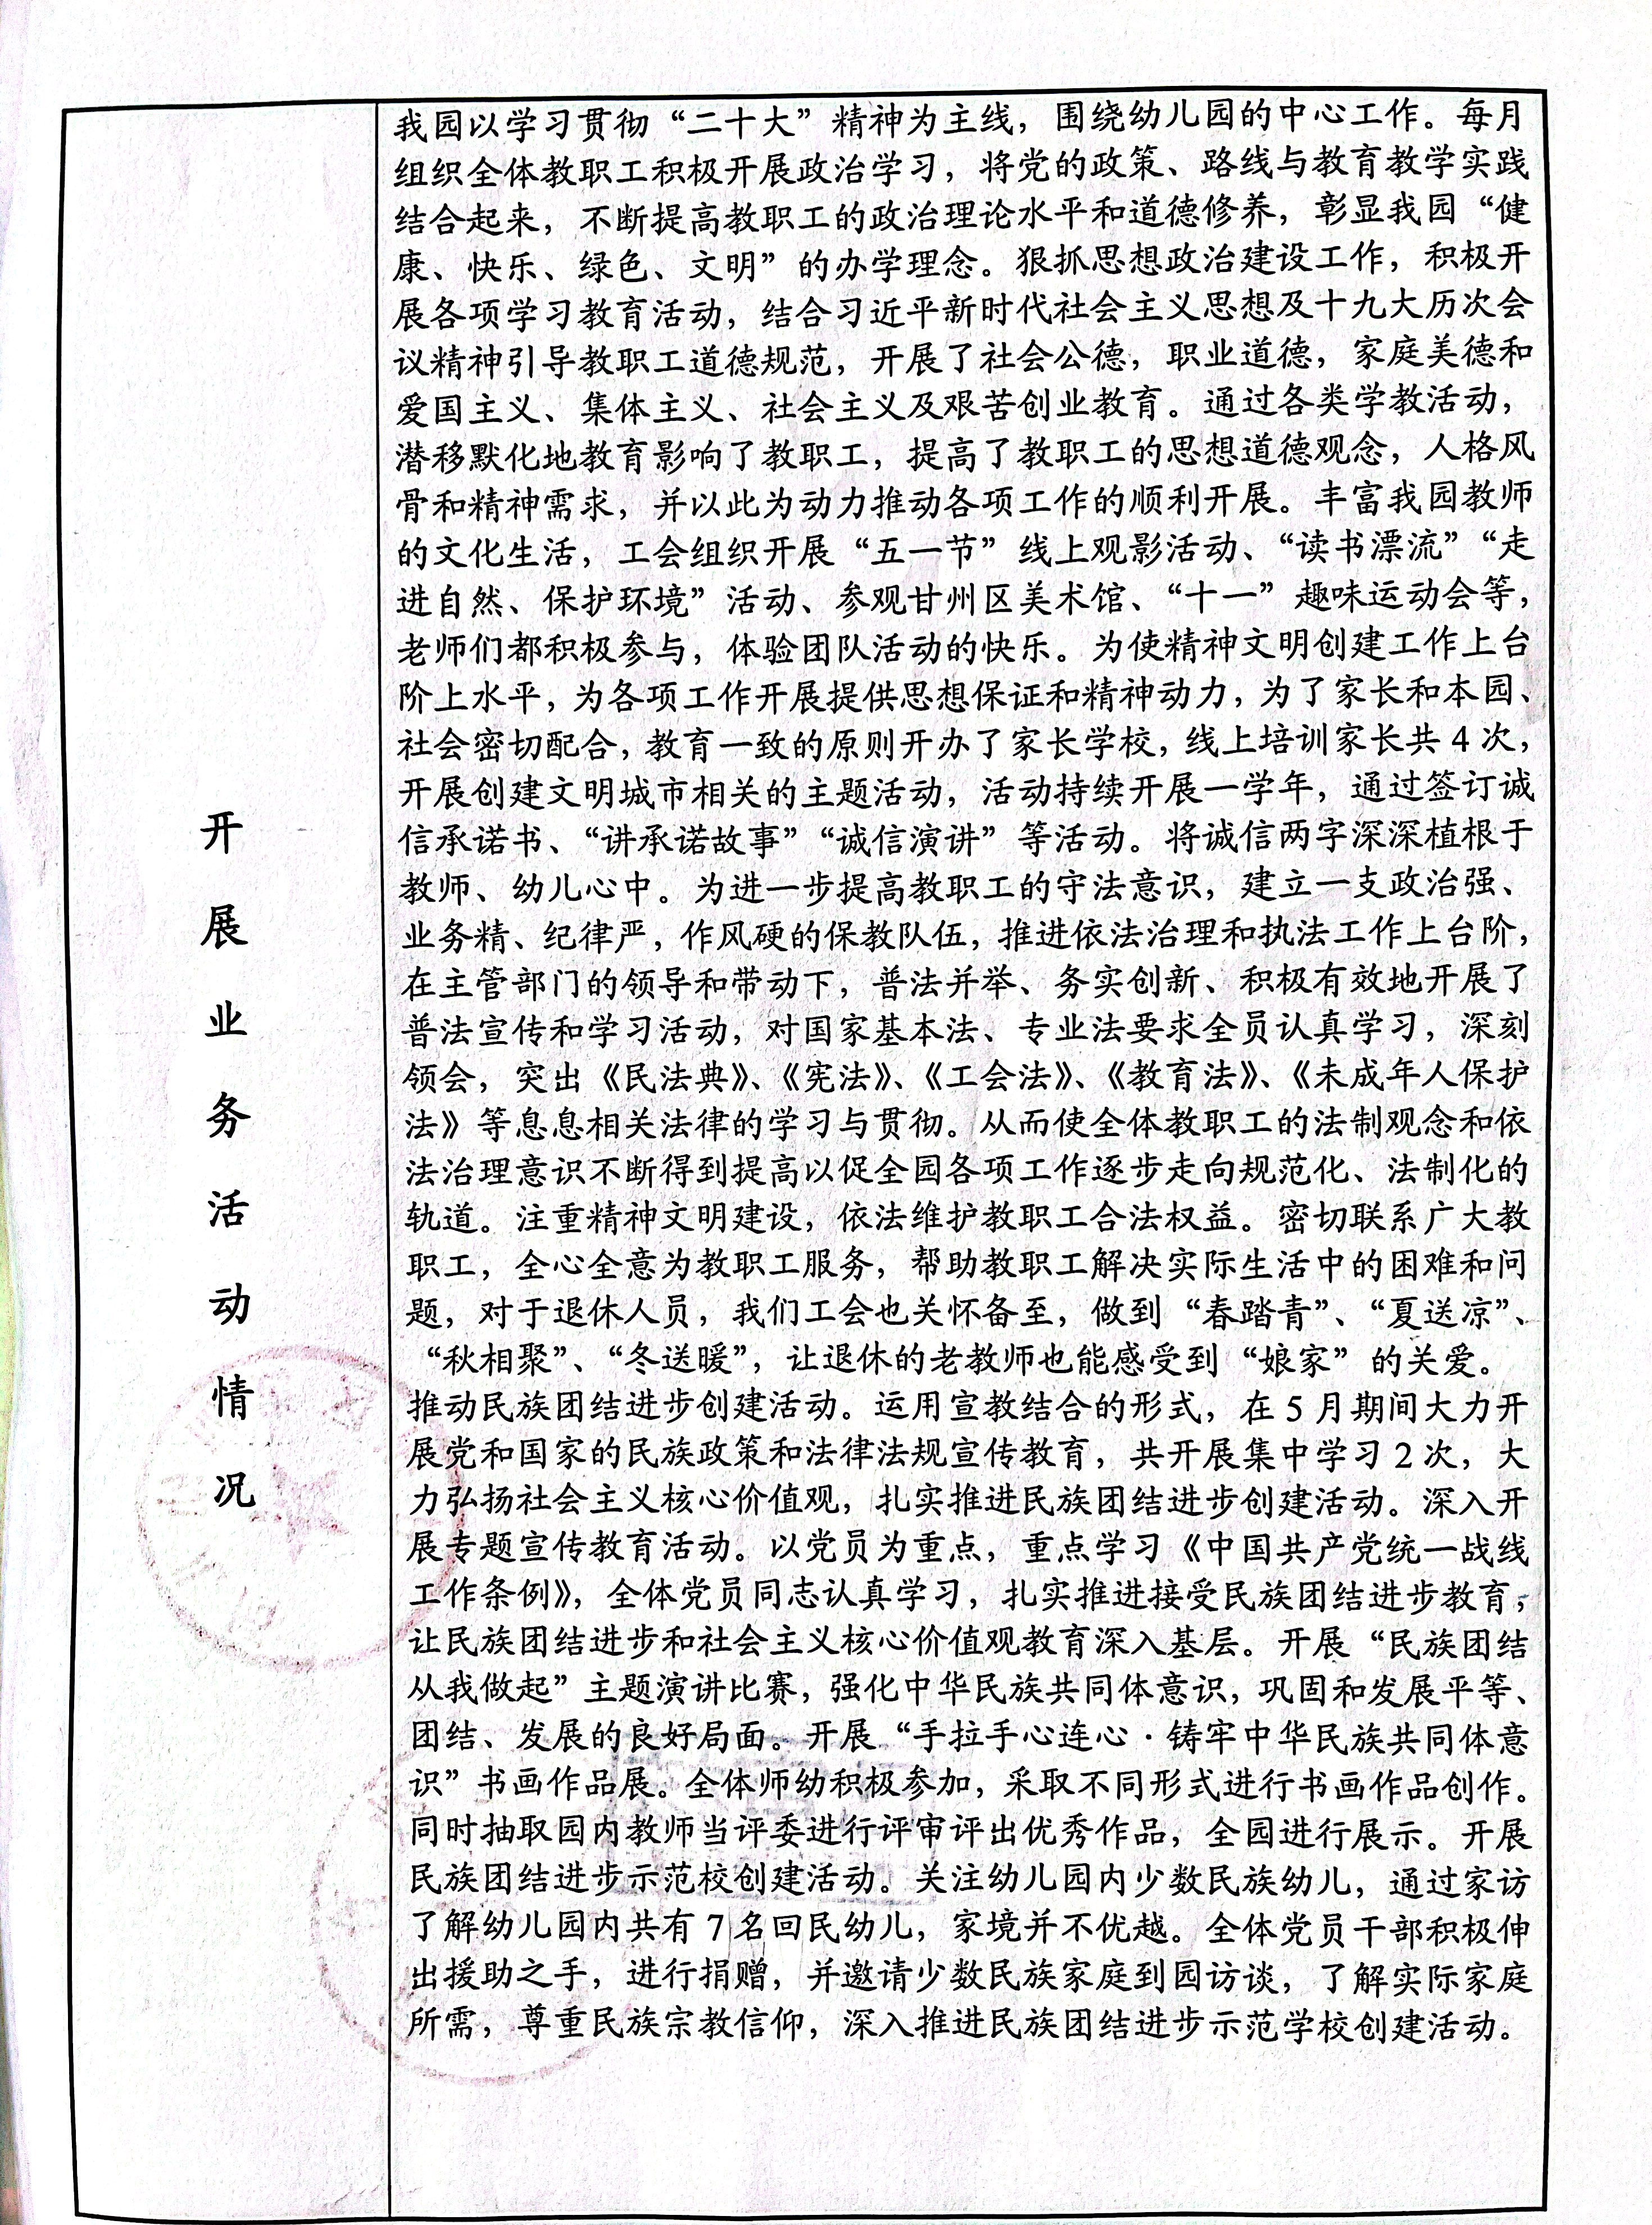 开展业务活动情况
我园以学习贯彻“二十大”精神为主线，围绕幼儿园的中心工作。每月
组织全体教职工积极开展政治学习，将党的政策、路线与教育教学实践
结合起来，不断提高教职工的政治理论水平和道德修养，彰显我园“健
康、快乐、绿色、文明”的办学理念。狠抓思想政治建设工作，积极开
展各项学习教育活动，结合习近平新时代社会主义思想及十九大历次会
议精神引导教职工道德规范，开展了社会公德，职业道德，家庭美德和
爱国主义、集体主义、社会主义及艰苦创业教育。通过各类学教活动，
潜移默化地教育影响了教职工，提高了教职工的思想道德观念，人格风
骨和精神需求，并以此为动力推动各项工作的顺利开展。丰富我园教师
的文化生活，工会组织开展“五一节”线上观影活动、“读书漂流”“走
进自然、保护环境”活动、参观甘州区美术馆、“十一”趣味运动会等，
老师们都积极参与，体验团队活动的快乐。为使精神文明创建工作上台
阶上水平，为各项工作开展提供思想保证和精神动力，为了家长和本园、
社会密切配合，教育一致的原则开办了家长学校，线上培训家长共4次，
开展创建文明城市相关的主题活动，活动持续开展一学年，通过签订诚
信承诺书、“讲承诺故事”“诚信演讲”等活动。将诚信两字深深植根于
教师、幼儿心中。为进一步提高教职工的守法意识，建立一支政治强、
业务精、纪律严，作风硬的保教队伍，推进依法治理和执法工作上台阶，
在主管部门的领导和带动下，普法并举、务实创新、积极有效地开展了
普法宣传和学习活动，对国家基本法、专业法要求全员认真学习，深刻
领会，突出《民法典》、《宪法》、《工会法》、《教育法》、《未成年人保护
法》等息息相关法律的学习与贯彻。从而使全体教职工的法制观念和依
法治理意识不断得到提高以促全园各项工作逐步走向规范化、法制化的
轨道。注重精神文明建设，依法维护教职工合法权益。密切联系广大教
职工，全心全意为教职工服务，帮助教职工解决实际生活中的困难和问
题，对于退休人员，我们工会也关怀备至，做到“春踏青”、“夏送凉”、
“秋相聚”、“冬送暖”，让退休的老教师也能感受到“娘家”的关爱。
推动民族团结进步创建活动。运用宣教结合的形式，在5月期间大力开
展党和国家的民族政策和法律法规宣传教育，共开展集中学习2次，大
力弘扬社会主义核心价值观，扎实推进民族团结进步创建活动。深入开
展专题宣传教育活动。以党员为重点，重点学习《中国共产党统一战线
工作条例》，全体党员同志认真学习，扎实推进接受民族团结进步教育，
让民族团结进步和社会主义核心价值观教育深入基层。开展“民族团结
从我做起”主题演讲比赛，强化中华民族共同体意识，巩固和发展平等、
团结、发展的良好局面。开展“手拉手心连心·铸牢中华民族共同体意
识”书画作品展。全体师幼积极参加，采取不同形式进行书画作品创作。
同时抽取园内教师当评委进行评审评出优秀作品，全园进行展示。开展
民族团结进步示范校创建活动。关注幼儿园内少数民族幼儿，通过家访
了解幼儿园内共有7名回民幼儿，家境并不优越。全体党员干部积极伸
出援助之手，进行捐赠，并邀请少数民族家庭到园访谈，了解实际家庭
所需，尊重民族宗教信仰，深入推进民族团结进步示范学校创建活动。